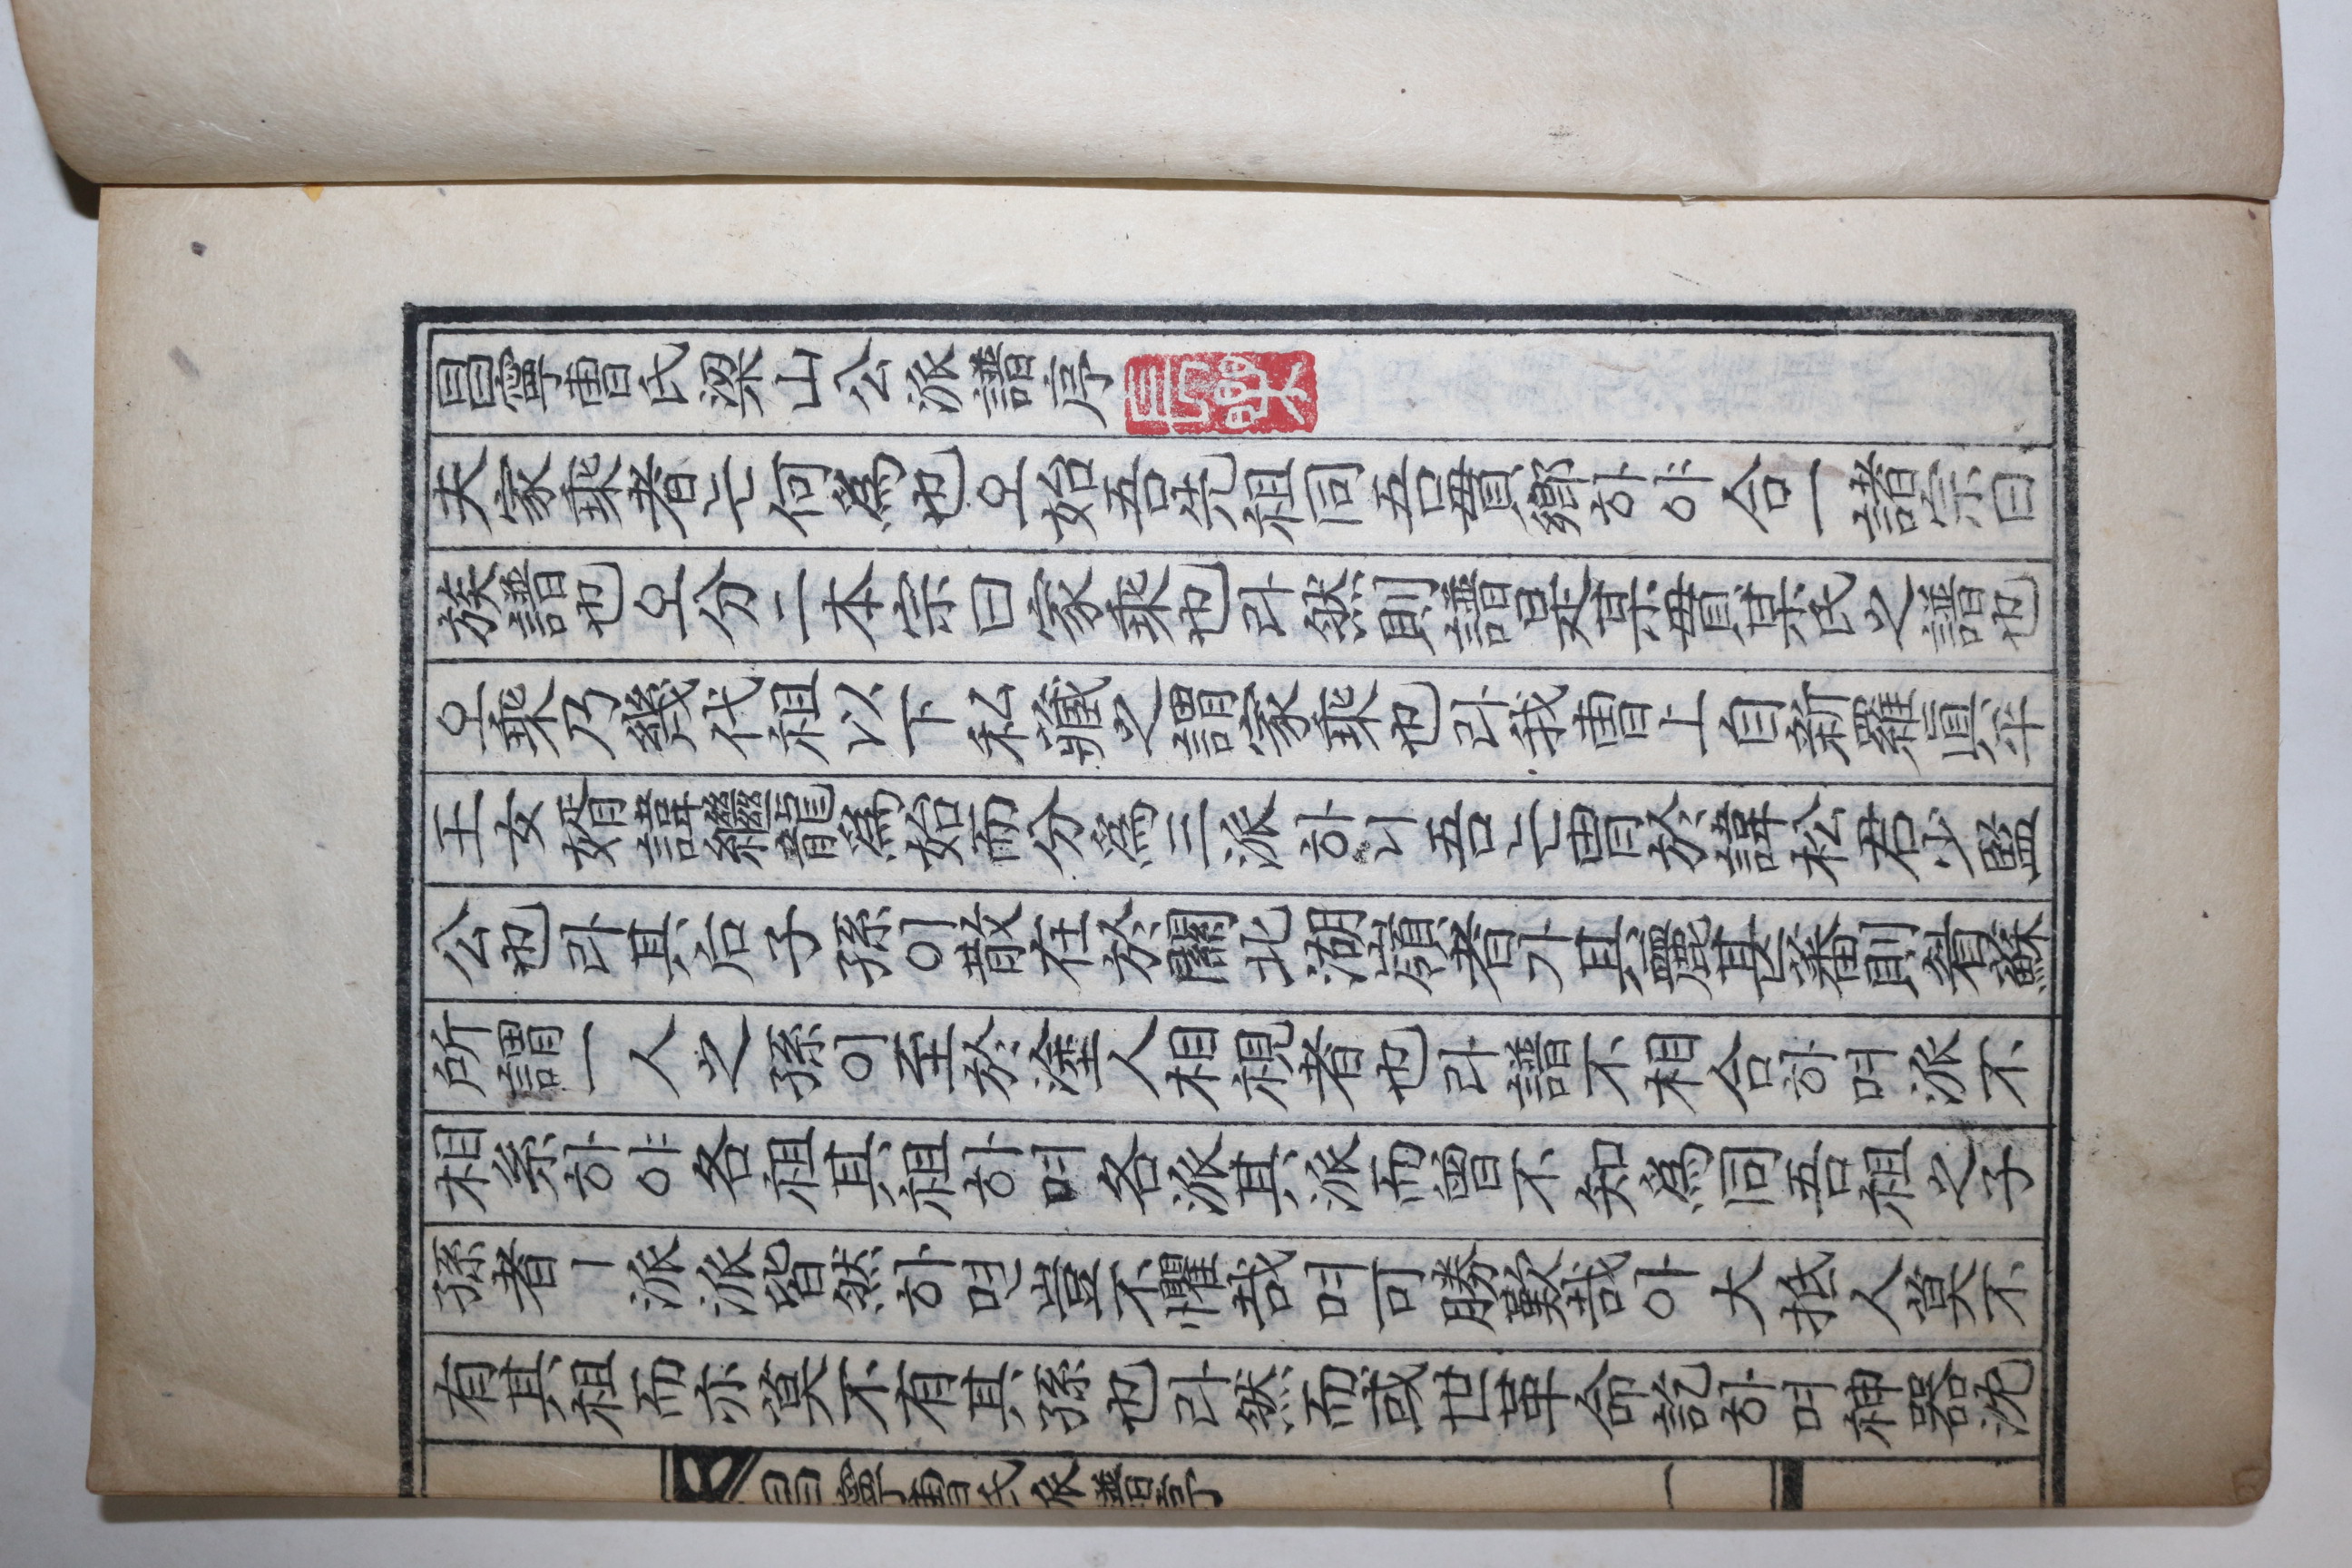 昌寧曺氏梁山公派譜序
夫家乘者는何爲也오始吾先祖同吾貫鄕하야合一諸宗曰
族譜也오分二本宗曰家乘也라然則譜是某貫某氏之譜也
오乘乃幾代祖以下私藏之謂家乘也라我曺上自新羅眞平
王女婿諱繼龍爲始而分爲三派하니吾는冑於諱松君少監
公也라其后子孫이散在於關北湖嶺者가其麗甚蕃則眷蘇
所謂一人之孫이至於塗人相視者也라譜不相合하며派不
相系하야各祖其祖하며各派其派而曾不知爲同吾祖之子
孫者ㅣ派派皆然하면豈不懼哉며可勝歎哉아大抵人莫不
有其祖而亦莫不有其孫也라然而或世革命訖하며神器沈
昌寧曺氏派譜序 一